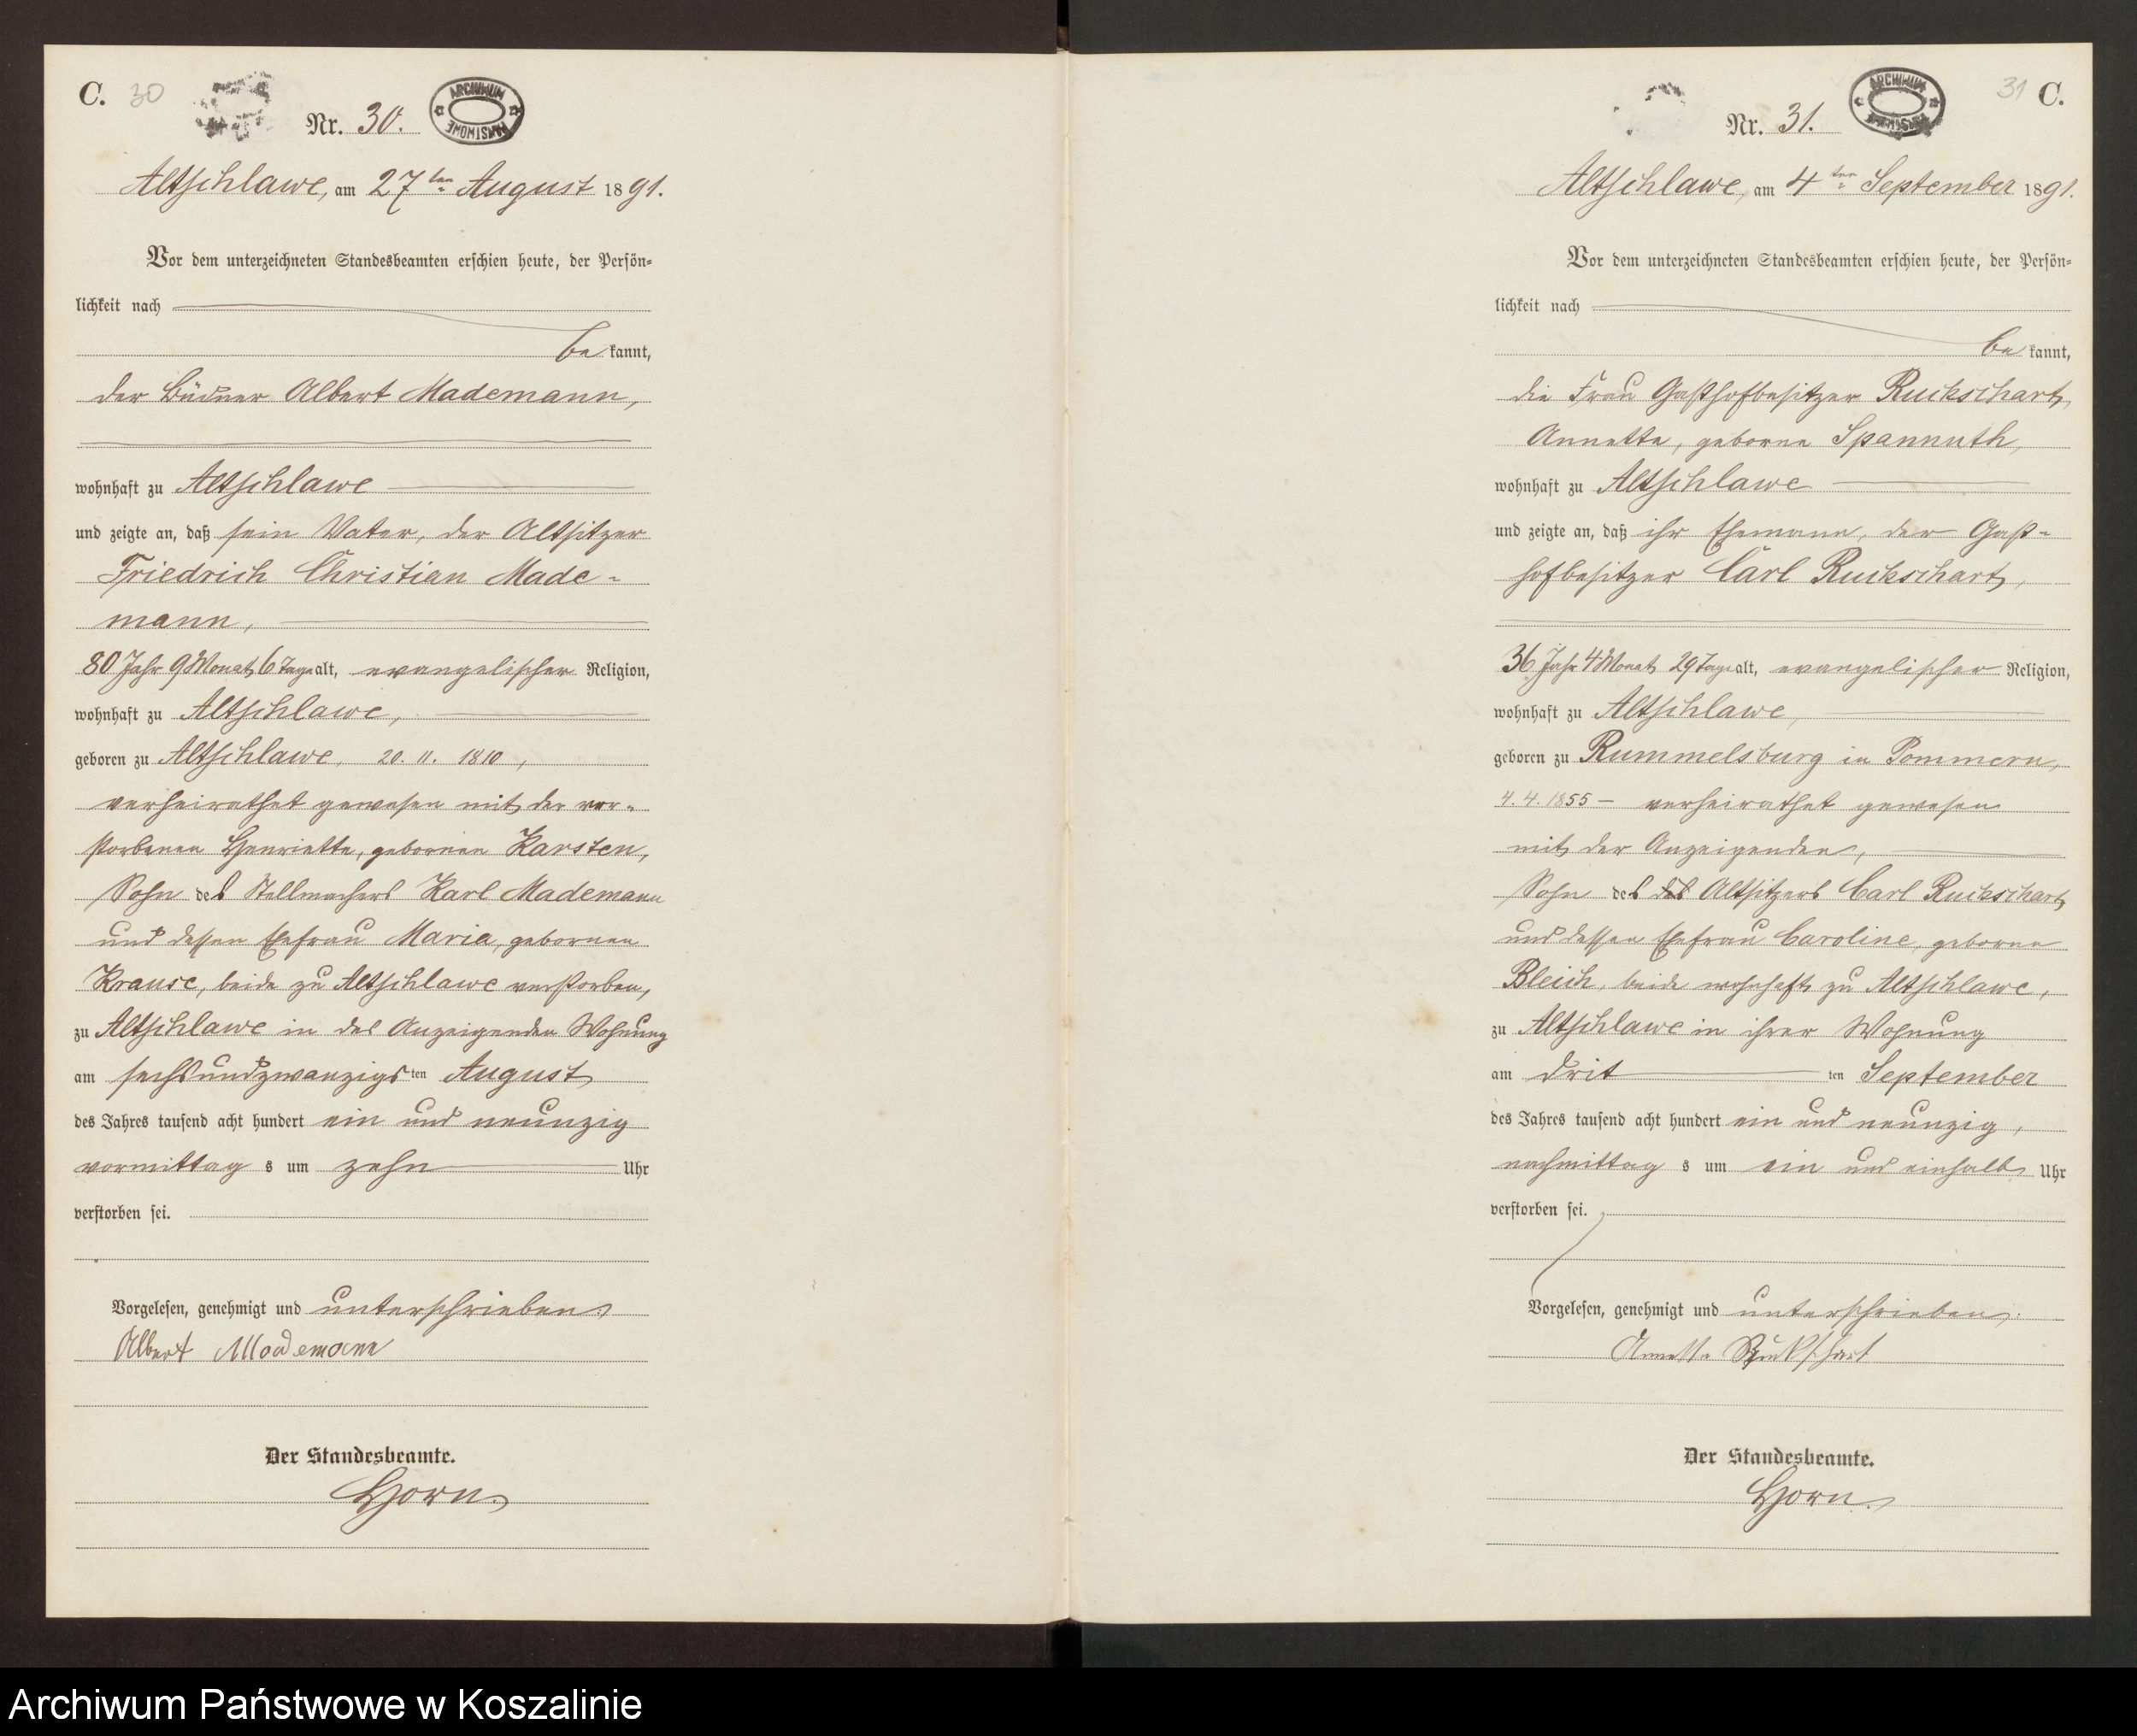 C. 30
Nr. 30.
ARCHIWUM PAŃSTWOWE
Altschlawe, am 27ten August 1891.
Vor dem unterzeichneten Standesbeamten erschien heute, der Persön-
lichkeit nach
be kannt,
der Büdner Albert Mademann,
wohnhaft zu Altschlawe
und zeigte an, daß sein Vater, der Altsitzer
Friedrich Christian Made-
mann,
80 Jahr 9 Monat 6 Tage alt, evangelischer Religion,
wohnhaft zu Altschlawe,
geboren zu Altschlawe, 20. 11. 1810,
verheirathet gewesen mit der ver-
storbenen Henriette, gebornen Karsten,
Sohn des Stellmachers Karl Mademann
und dessen Ehefrau Maria, gebornen
Krause, beide zu Altschlawe verstorben,
zu Altschlawe in des Anzeigenden Wohnung
am sechsundzwanzigsten August
des Jahres tausend acht hundert ein und neunzig
vormittag s um zehn Uhr
verstorben sei.
Vorgelesen, genehmigt und unterschrieben
Albert Mademann
Der Standesbeamte.
Horn.
31 C.
Nr. 31.
ARCHIWUM PAŃSTWOWE
Altschlawe, am 4ten September 1891.
Vor dem unterzeichneten Standesbeamten erschien heute, der Persön-
lichkeit nach
be kannt,
die Frau Gasthofbesitzer Ruckschart,
Annette, geborne Spannuth,
wohnhaft zu Altschlawe
und zeigte an, daß ihr Ehemann, der Gast-
hofbesitzer Carl Ruckschart,
36 Jahr 4 Monat 29 Tage alt, evangelischer Religion,
wohnhaft zu Altschlawe,
geboren zu Rummelsburg in Pommern,
4. 4. 1855 – verheirathet gewesen
mit der Anzeigenden,
Sohn des des Altsitzers Carl Ruckschart
und dessen Ehefrau Caroline, geborne
Bleich, beide wohnhaft zu Altschlawe,
zu Altschlawe in ihrer Wohnung
am drit ten September
des Jahres tausend acht hundert ein und neunzig,
nachmittag s um ein und einhalb Uhr
verstorben sei.
Vorgelesen, genehmigt und unterschrieben.
Annette Ruckschart
Der Standesbeamte.
Horn.
Archiwum Państwowe w Koszalinie